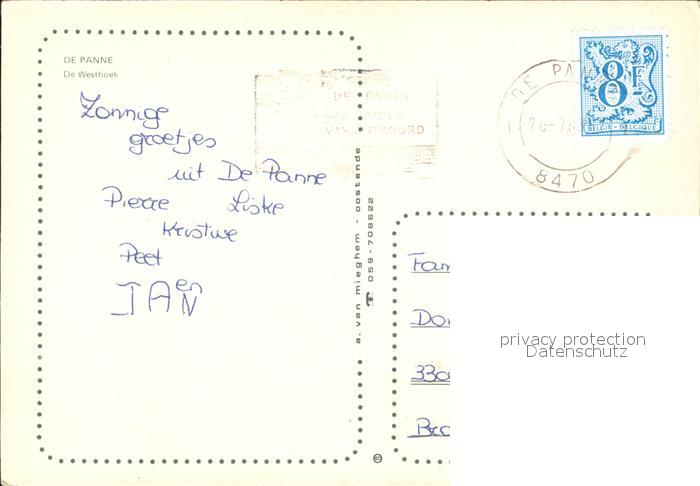 DE PANNE
De Westhoek
Zonnige
groetjes
uit De Panne
Pierre Liske
Kristine
Peet
en
JAN
a. van mieghem - oostende
059-708622
DE PANNE
8470
8F
BELGIE - BELGIQUE
Fam
330
privacy protection
Datenschutz